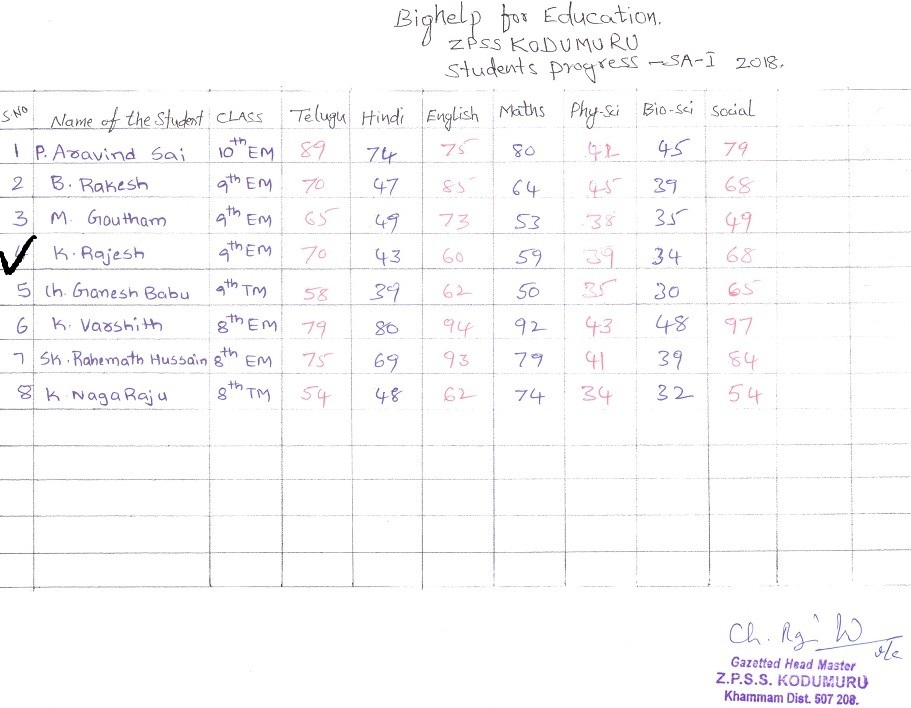 Bighelp for Education.
ZPSS KODUMURU
Students Progress - SA-I 2018.
S.NO Name of the Student CLASS Telugu Hindi English Maths Phy-sci Bio-sci Social
1 P. Aravind Sai 10th EM 89 74 75 80 42 45 79
2 B. Rakesh 9th EM 70 47 85 64 45 39 68
3 M. Goutham 9th EM 65 49 73 53 38 35 49
K. Rajesh 9th EM 70 43 60 59 39 34 68
5 Ch. Ganesh Babu 9th TM 58 39 62 50 35 30 65
6 K. Varshith 8th EM 79 80 94 92 43 48 97
7 SK. Rahemath Hussain 8th EM 75 69 93 79 41 39 84
8 K. NagaRaju 8th TM 54 48 62 74 34 32 54
Ch.
Gazetted Head Master
Z.P.S.S. KODUMURU
Khammam Dist. 507 208.